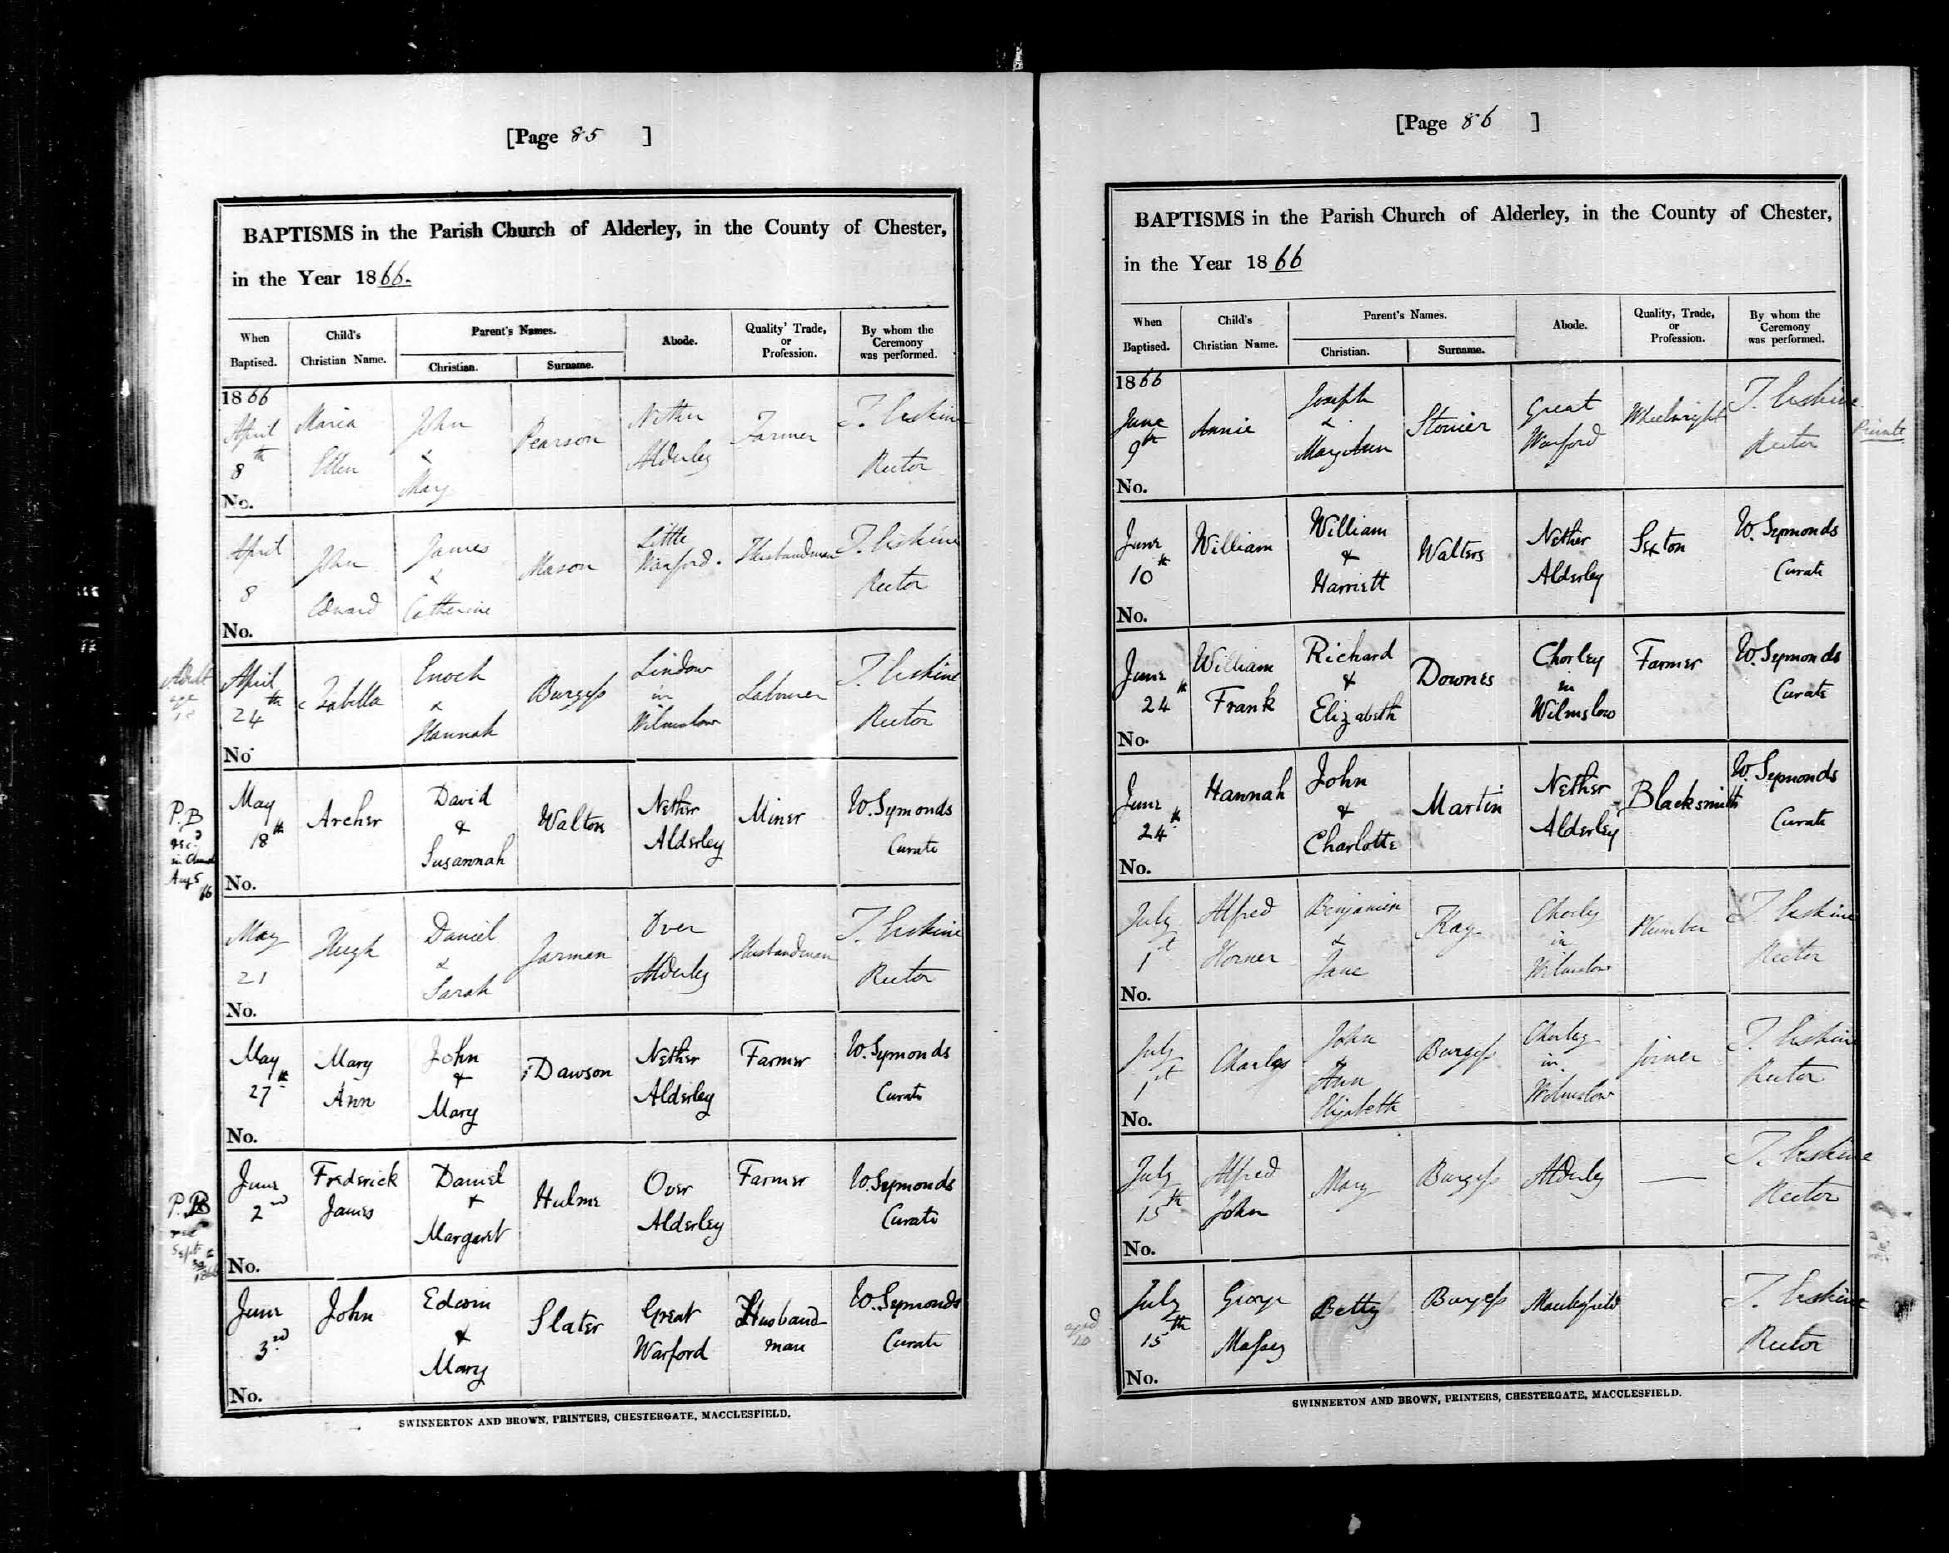 [Page 85 ]
BAPTISMS in the Parish Church of Alderley, in the County of Chester,
in the Year 1866.
When Baptised. Child's Christian Name. Parent's Names. Christian. Surname. Abode. Quality' Trade, or Profession. By whom the Ceremony was performed.
1866
April 8th Maria Ellen John & Mary Pearson Nether Alderley Farmer T. Erskine Rector
No.
April 8 John Edward James & Catherine Mason Little Warford. Husbandman T. Erskine Rector
No.
Adult age 18
April 24th Zabella Enoch & Hannah Burgess Lindow in Wilmslow Labourer T. Erskine Rector
No.
P.B recd in Church Aug 5 66
May 18th Archer David & Susannah Walton Nether Alderley Miner W. Symonds Curate
No.
May 21 Hugh Daniel & Sarah Jarman Over Alderley Husbandman T. Erskine Rector
No.
May 27th Mary Ann John & Mary Dawson Nether Alderley Farmer W. Symonds Curate
No.
P.B recd Sept 1866
June 2nd Frederick James Daniel & Margaret Hulme Over Alderley Farmer W. Symonds Curate
No.
June 3rd John Edwin & Mary Slater Great Warford Husband man W. Symonds Curate
No.
SWINNERTON AND BROWN, PRINTERS, CHESTERGATE, MACCLESFIELD.
[Page 86 ]
BAPTISMS in the Parish Church of Alderley, in the County of Chester,
in the Year 1866
When Baptised. Child's Christian Name. Parent's Names. Christian. Surname. Abode. Quality, Trade, or Profession. By whom the Ceremony was performed.
1866
June 9th Annie Joseph & Mary Ann Stonier Great Warford Wheelwright T. Erskine Rector
Private
No.
June 10th William William & Harriett Walters Nether Alderley Sexton W. Symonds Curate
No.
June 24th William Frank Richard & Elizabeth Downes Chorley in Wilmslow Farmer W. Symonds Curate
No.
June 24th Hannah John & Charlotte Martin Nether Alderley Blacksmith W. Symonds Curate
No.
July 1st Alfred Horner Benjamin & Jane Kay Chorley in Wilmslow Plumber T. Erskine Rector
No.
July 1st Charles John & Ann Elizabeth Burgess Chorley in Wilmslow Joiner T. Erskine Rector
No.
July 15th Alfred John Mary Burgess Alderley — T. Erskine Rector
No.
aged 10
July 15th George Massey Betty Burgess Macclesfield T. Erskine Rector
No.
SWINNERTON AND BROWN, PRINTERS, CHESTERGATE, MACCLESFIELD.